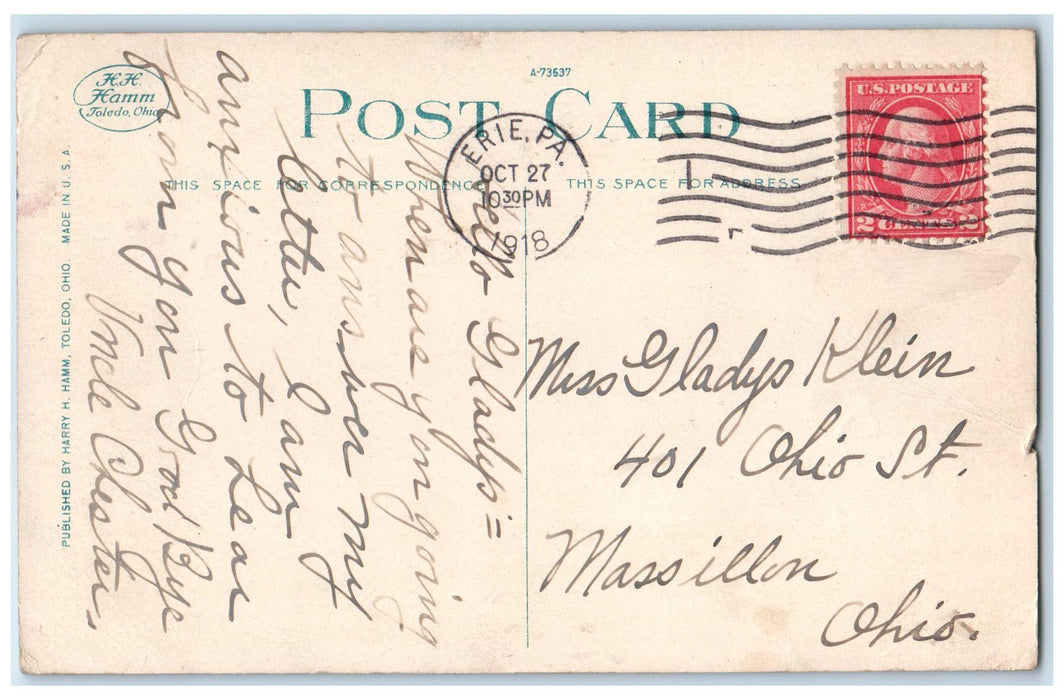 A-73537
POST CARD
H.H.
Hamm
Toledo, Ohio
THIS SPACE FOR CORRESPONDENCE
THIS SPACE FOR ADDRESS
ERIE, PA.
OCT 27
10 30 PM
1918
U.S. POSTAGE
2 CENTS 2
PUBLISHED BY HARRY H. HAMM, TOLEDO, OHIO MADE IN U.S.A.
Hello Gladys =
When are you going
to answer my
letter, I am
anxious to hear
from you Good Bye
Uncle Chester.
Miss Gladys Klein
401 Ohio St.
Massillon
Ohio.